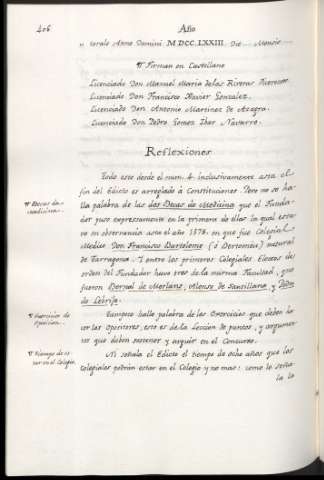 406
Año
torals Anno Domini M DCC.LXXIII. Die Mensis
¶ Firman en Castellano
Licenciado Don Manuel Maria de las Riveras Herrezer.
Licenciado Don Francisco Xavier Gonzalez.
Licenciado Don Antonio Martinez de Azagra.
Licenciado Don Pedro Gomez Ibar Navarro.
Reflexiones
Todo este desde el num. 4. inclusivamente asta el
fin del Edicto es arreglado à Constituciones. Pero no se ha
¶ Becas de medicina.
lla palabra de las dos Becas de Medicina que el Funda-
dor puso expresamente en la primera de ellas la qual estu-
vo en observancia asta el año 1578. en que fue Colegial
Medico Don Francisco Bartolome (ò Bertomeu) natural
de Tarragona. I entre los primeros Colegiales Electos de
orden del Fundador huvo tres de la misma Facultad, que
fueron Bernal de Morlans, Alonso de Santillana, y Pedro
de Lebrija.
¶ Exercicios de oposicion.
Tampoco halle palabra de los Exercicios que deben ha
cer los Opositores, esto es de la leccion de puntos, y argumen
tos que deben sostener y arguir en el Concurso.
¶ Tiempo de estar en el Colegio.
Ni señala el Edicto el tiempo de ocho años que los
Colegiales podràn estar en el Colegio y no mas: como lo seña
la la